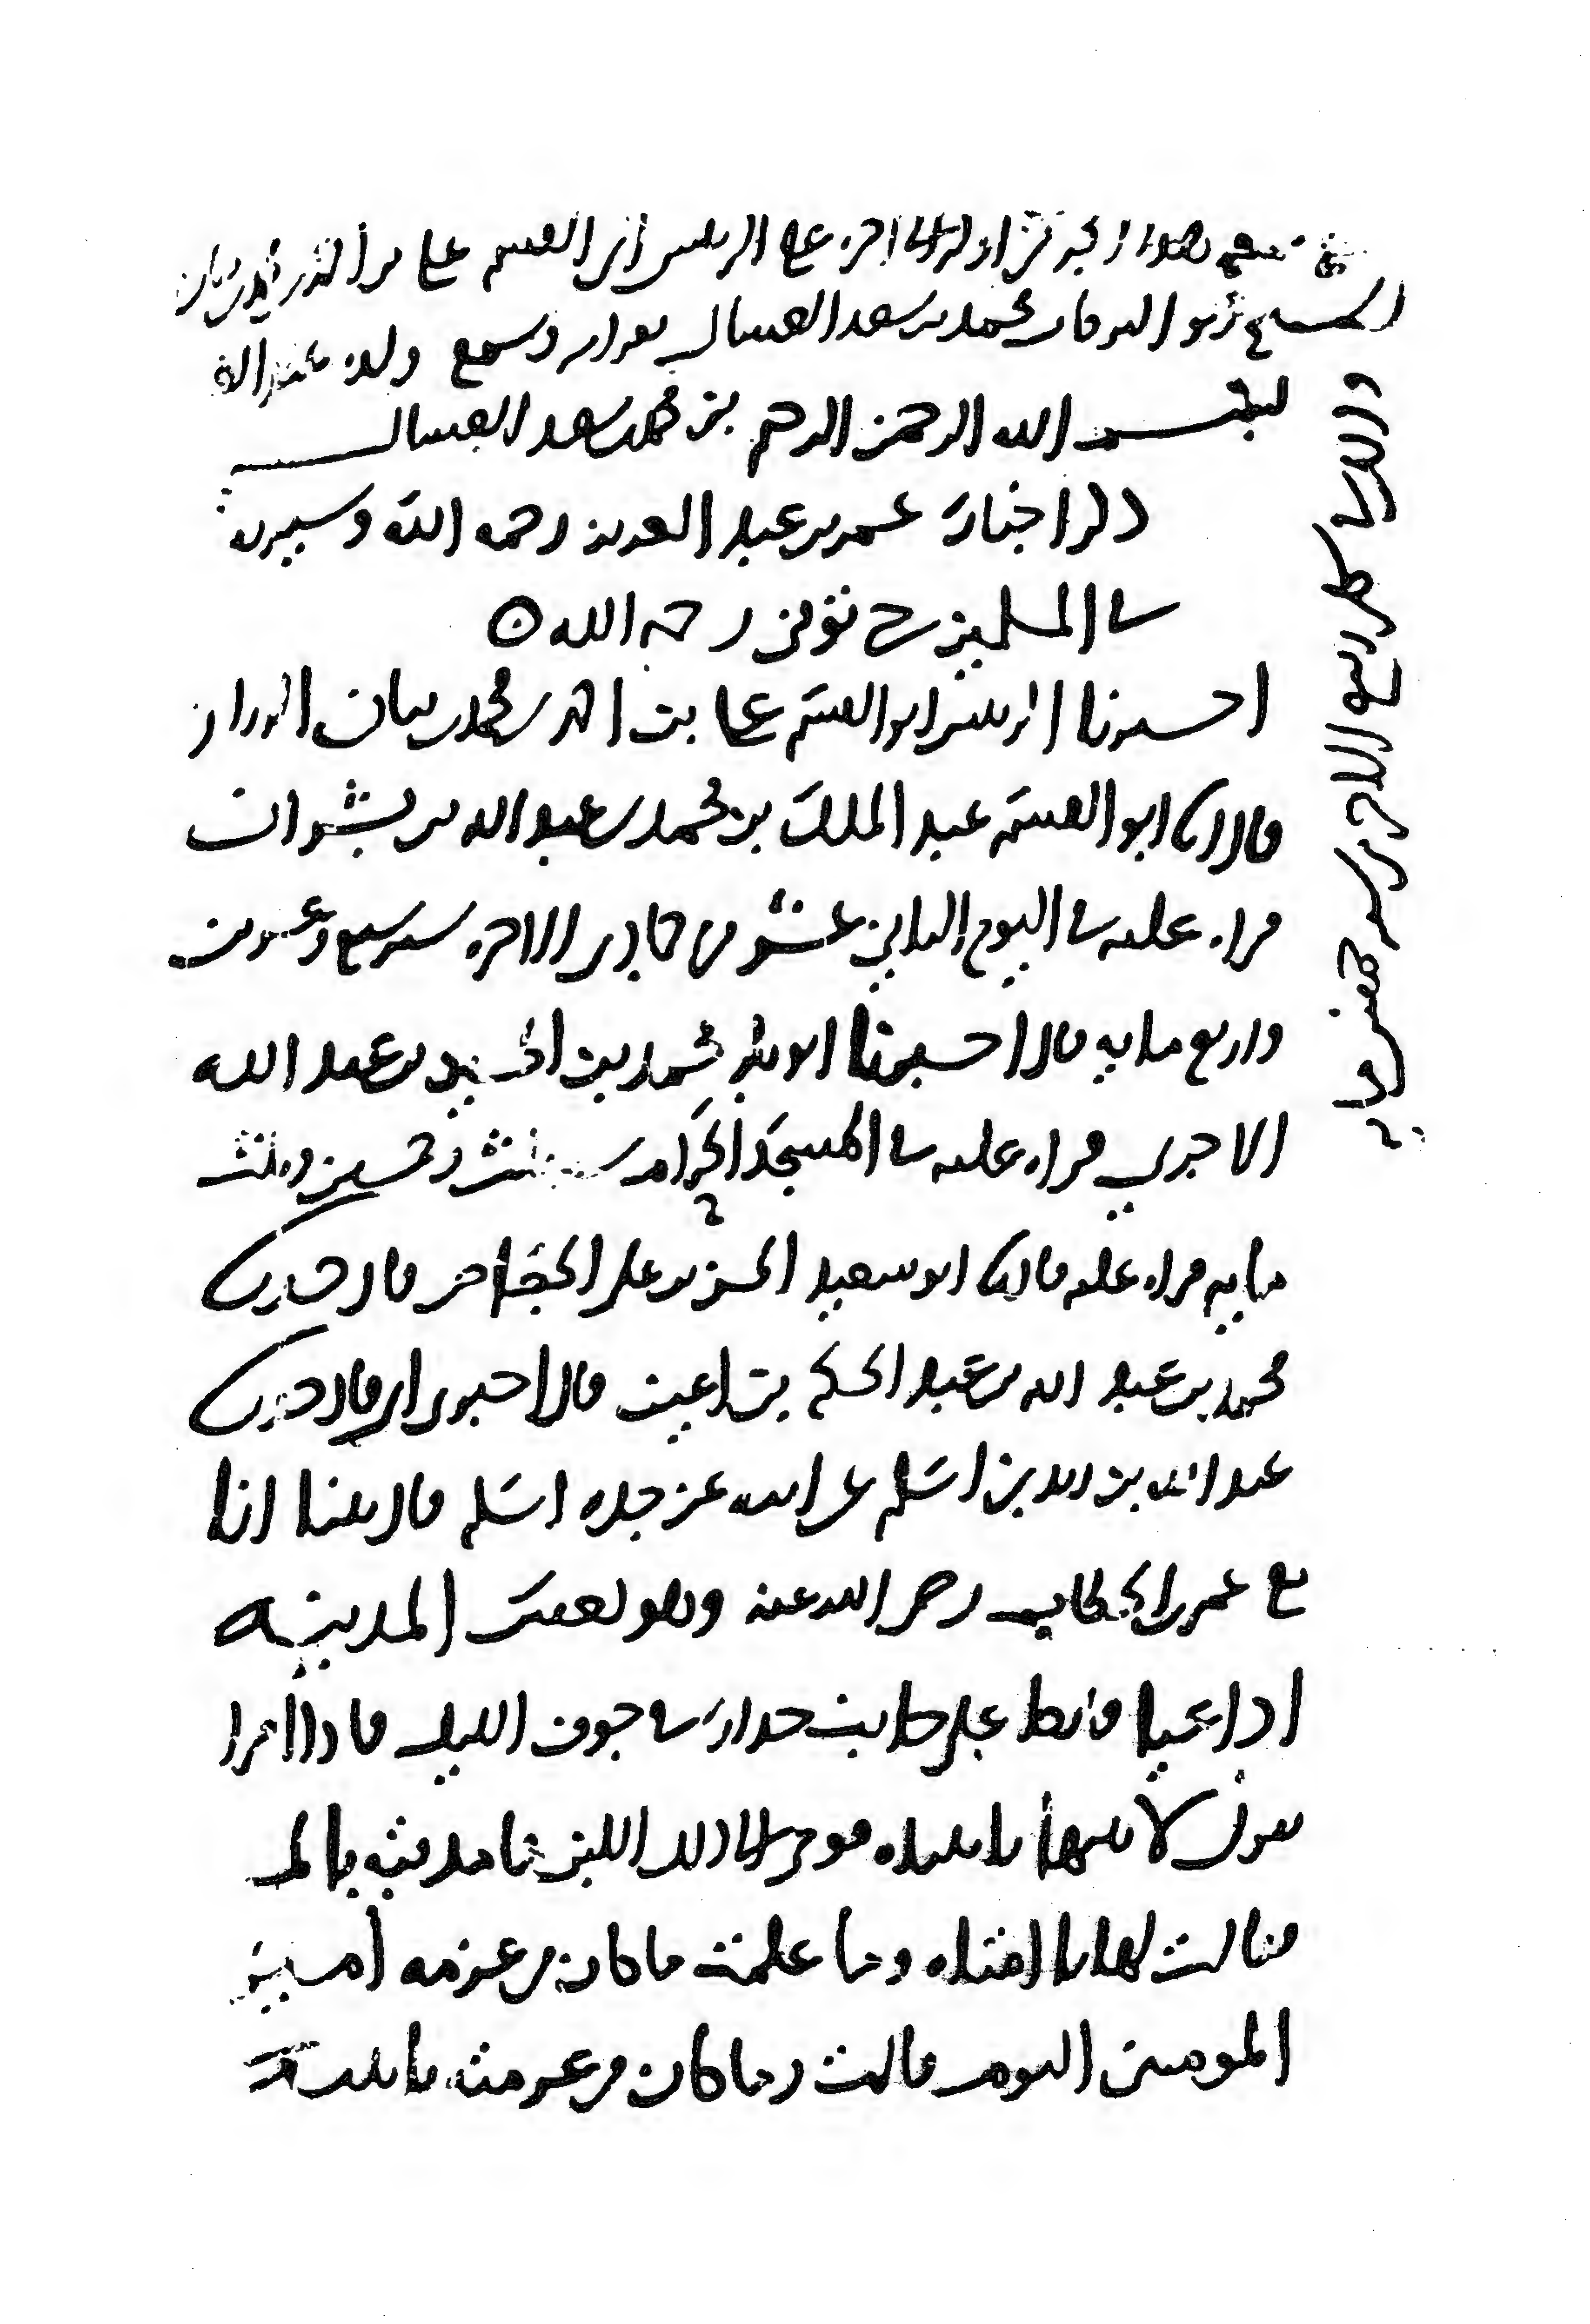 سمع هذا الجزء من اوله الى اخره على الرئيس ابي القسم على بن احمد بن محمد بن بيان
الشيخ ابو البركات محمد بن سعد العسال وسمع ولده
بسم الله الرحمن الرحيم بن محمد بن سعد العسال
ذكر اخبار عمر بن عبد العزيز رحمه الله وسيرته
في المسلمين حتى توفي رحمه الله
اخبرنا الرئيس ابو القسم علي بن احمد بن محمد بن بيان الوزان
قال انا ابو القسم عبد الملك بن محمد بن عبد الله بن بشران
قراه عليه في اليوم الثاني عشر من جمادى الاخره سنه سبع وعشرين
واربع مايه قال اخبرنا ابو بكر محمد بن الحسين بن عبد الله
الاجري قراه عليه في المسجد الحرام سنه ثلث وخمسين وثلث
مايه قراه عليه قال انا ابو سعيد الحسن بن علي الجصاص قال حدثنا
محمد بن عبد الله بن عبد الحكم بن اعين قال اخبرني ابي قال حدثنا
عبد الله بن زيد بن اسلم عن ابيه عن جده اسلم قال بينا انا
مع عمر بن الخطاب رضي الله عنه وهو يعس المدينه
اذ اعيا فاتكا على جانب جدار في جوف الليل فاذا امراة
تقول لابنتها يا بنتاه قومي الى ذلك اللبن فامذقيه بالما
فقالت لها يا امتاه وما علمت ما كان من عزمه امير
المومنين اليوم قالت وما كان من عزمته يا بنيه
والدي كمل ربيع الاخر سنه خمس مايه